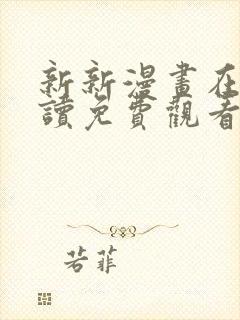 新新漫畫在
讀免費觀看
若菲